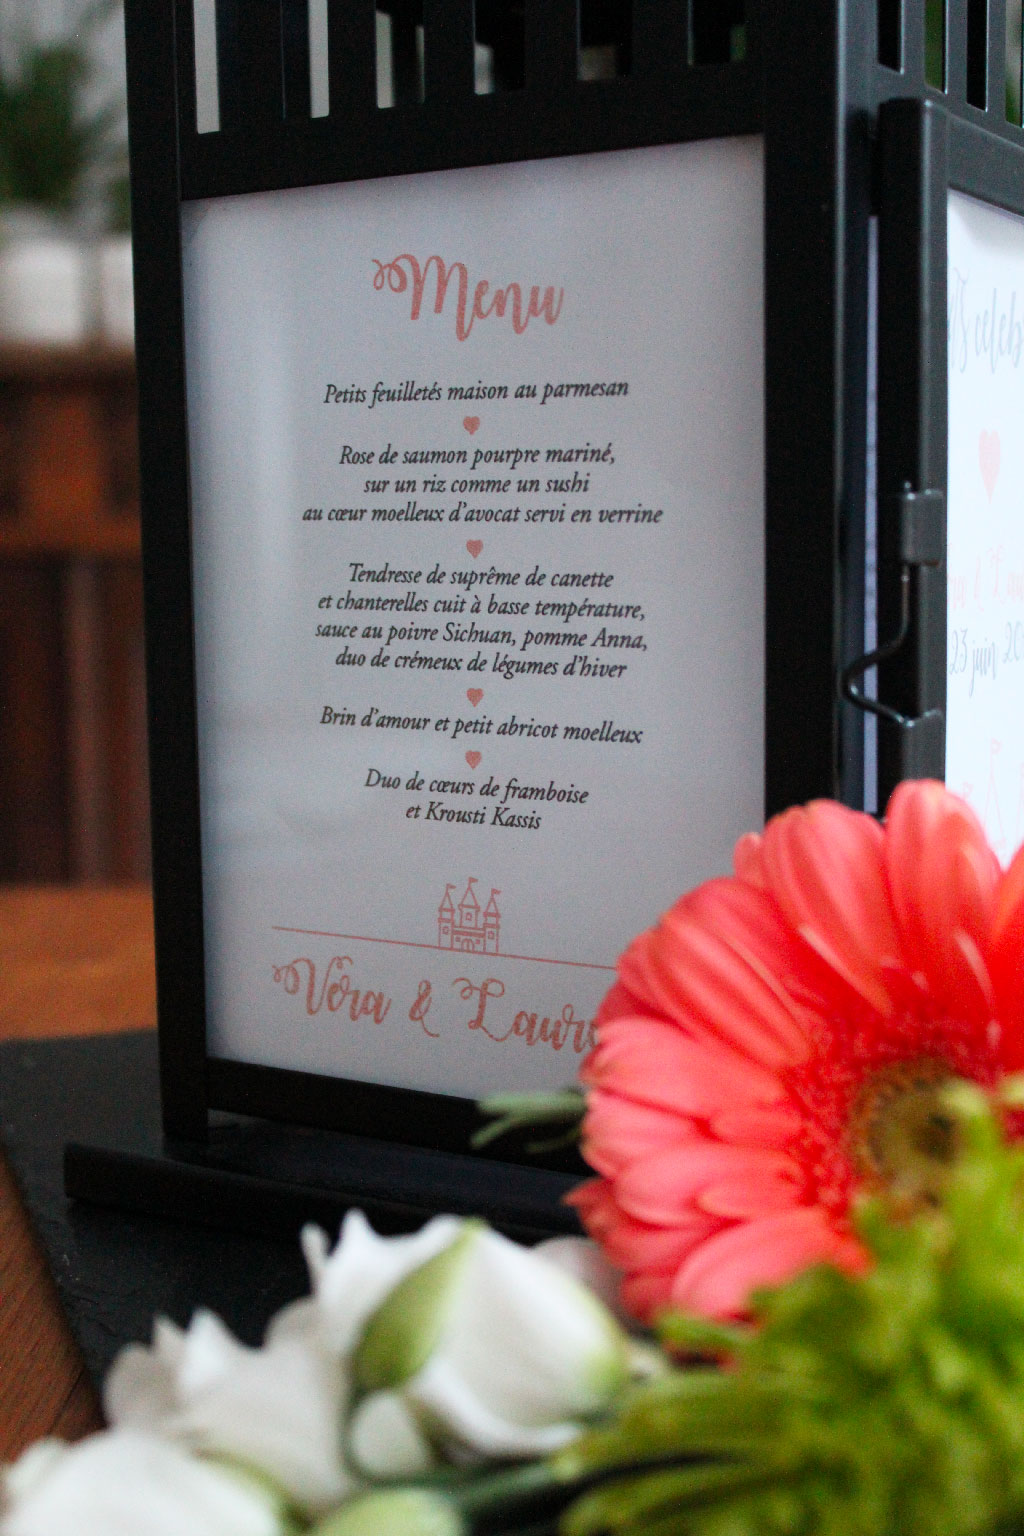 Menu
Petits feuilletés maison au parmesan
Rose de saumon pourpre mariné,
sur un riz comme un sushi
au cœur moelleux d'avocat servi en verrine
Tendresse de suprême de canette
et chanterelles cuit à basse température,
sauce au poivre Sichuan, pomme Anna,
duo de crémeux de légumes d'hiver
Brin d'amour et petit abricot moelleux
Duo de cœurs de framboise
et Krousti Kassis
Vera &
23 juin